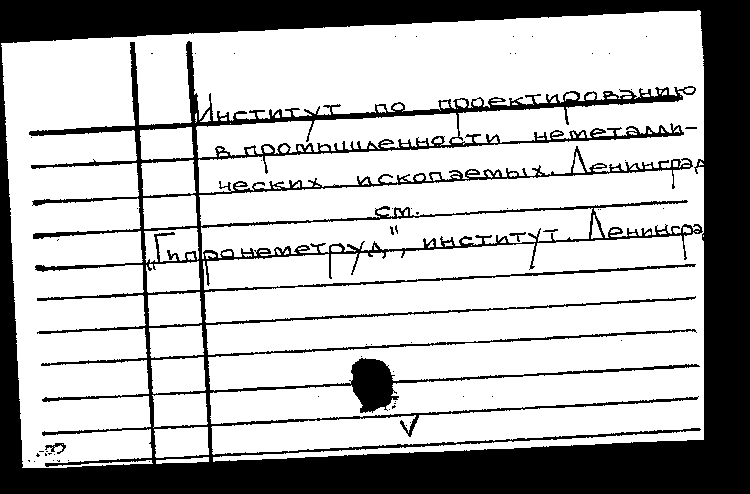 Институт по проектированию
в промышленности неметалли-
ческих ископаемых. Ленинград
см.
„Гипронеметруд", институт. Ленингра